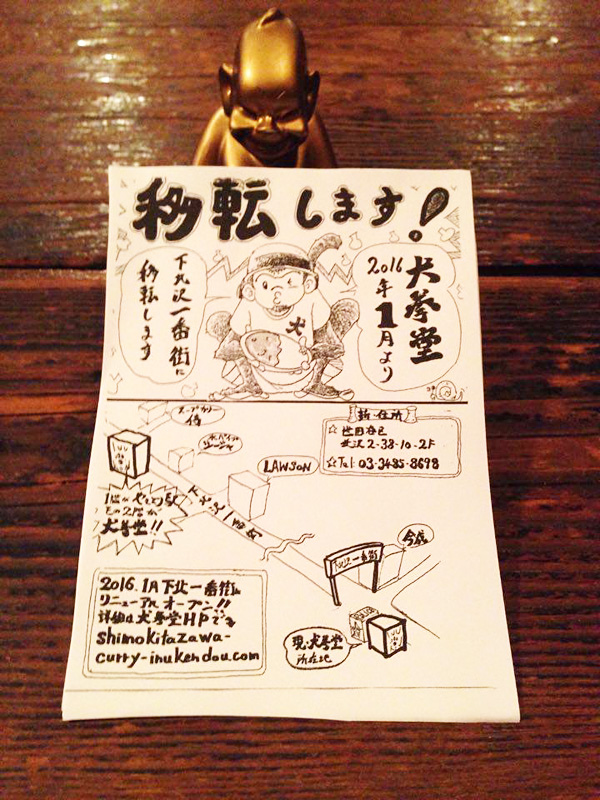 移転します!
犬拳堂
2016年1月より
下北沢一番街に
移転します
新・住所
☆世田谷区
北沢2-38-10-2F
☆Tel. 03-3485-8698
スープカリー
侍
LAWSON
下北沢一番街
犬拳堂!!
下北沢一番街
現・犬拳堂
所在地
2016.1月下北一番街に
リニューアルオープン!!
詳細は犬拳堂HPで
shimokitazawa-
curry-inukendou.com